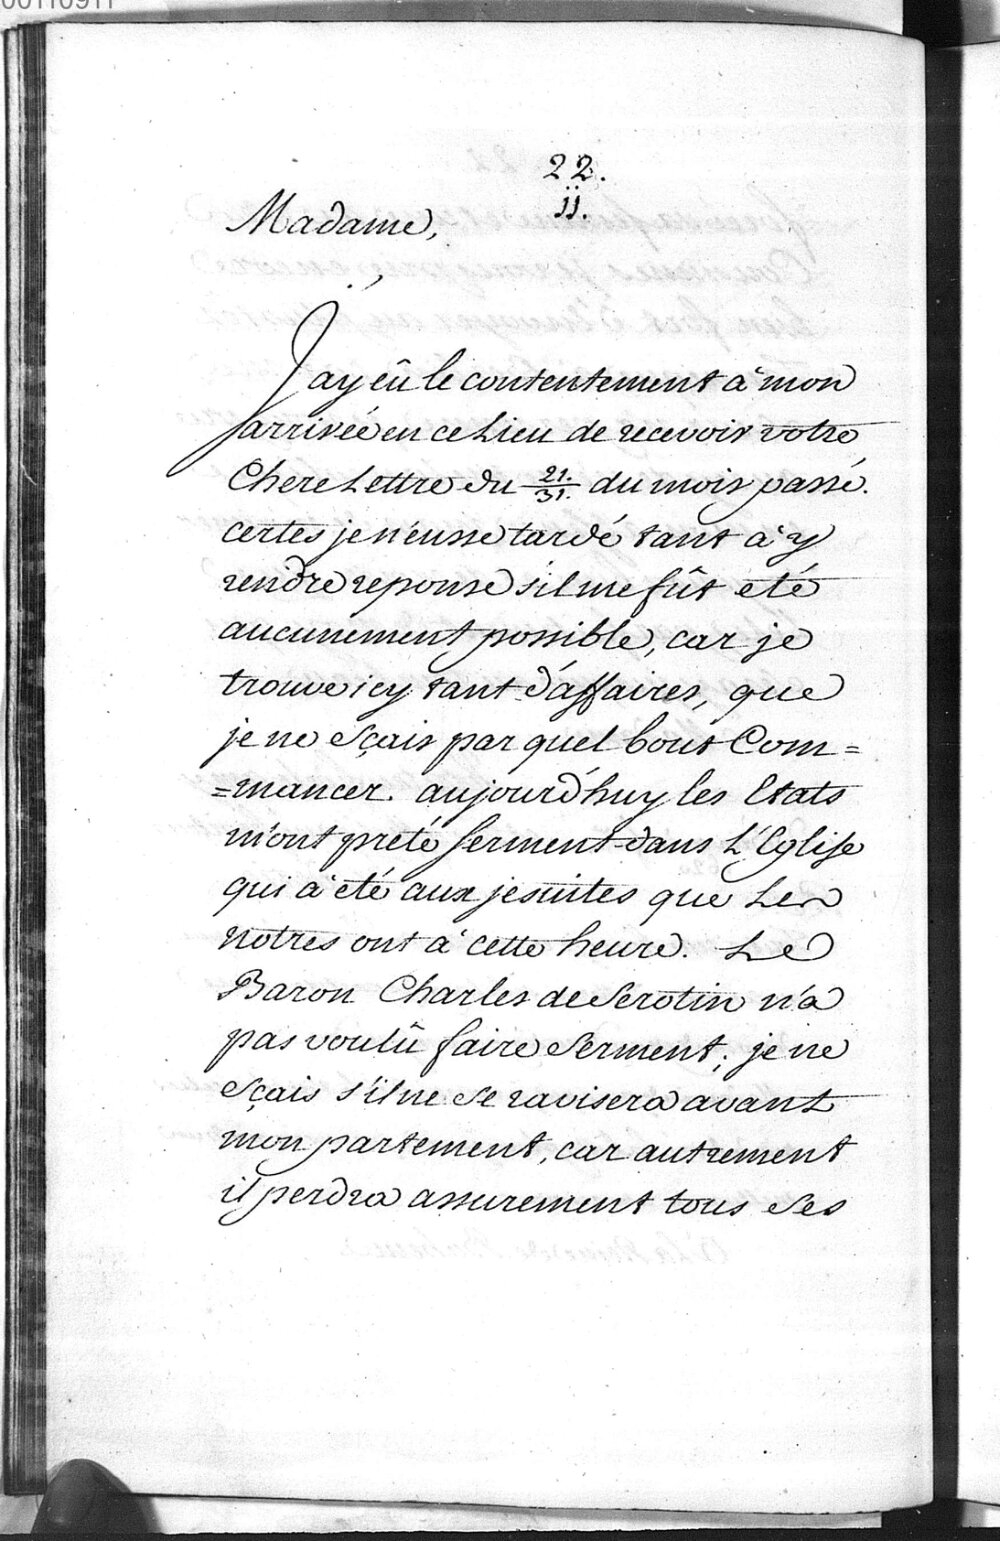 00110911
22.
ii.
Madame,
J'ay eû le contentement à mon
arrivée en ce Lieu de recevoir votre
Chere Lettre du 21./31. du mois passé.
certes je n'eusse tardé tant à y
rendre reponse s'il me fût eté
aucunement possible, car je
trouve icy tant d'affaires, que
je ne sçais par quel bout Com=
=mancer. aujourd'huy les Etats
m'ont preté serment dans L'Eglise
qui à eté aux jesuites que Les
notres ont à cette heure. Le
Baron Charles de Serotin n'a
pas voulû faire Serment; je ne
sçais s'il ne se ravisera avant
mon partement, car autrement
il perdra assurement tous Ses